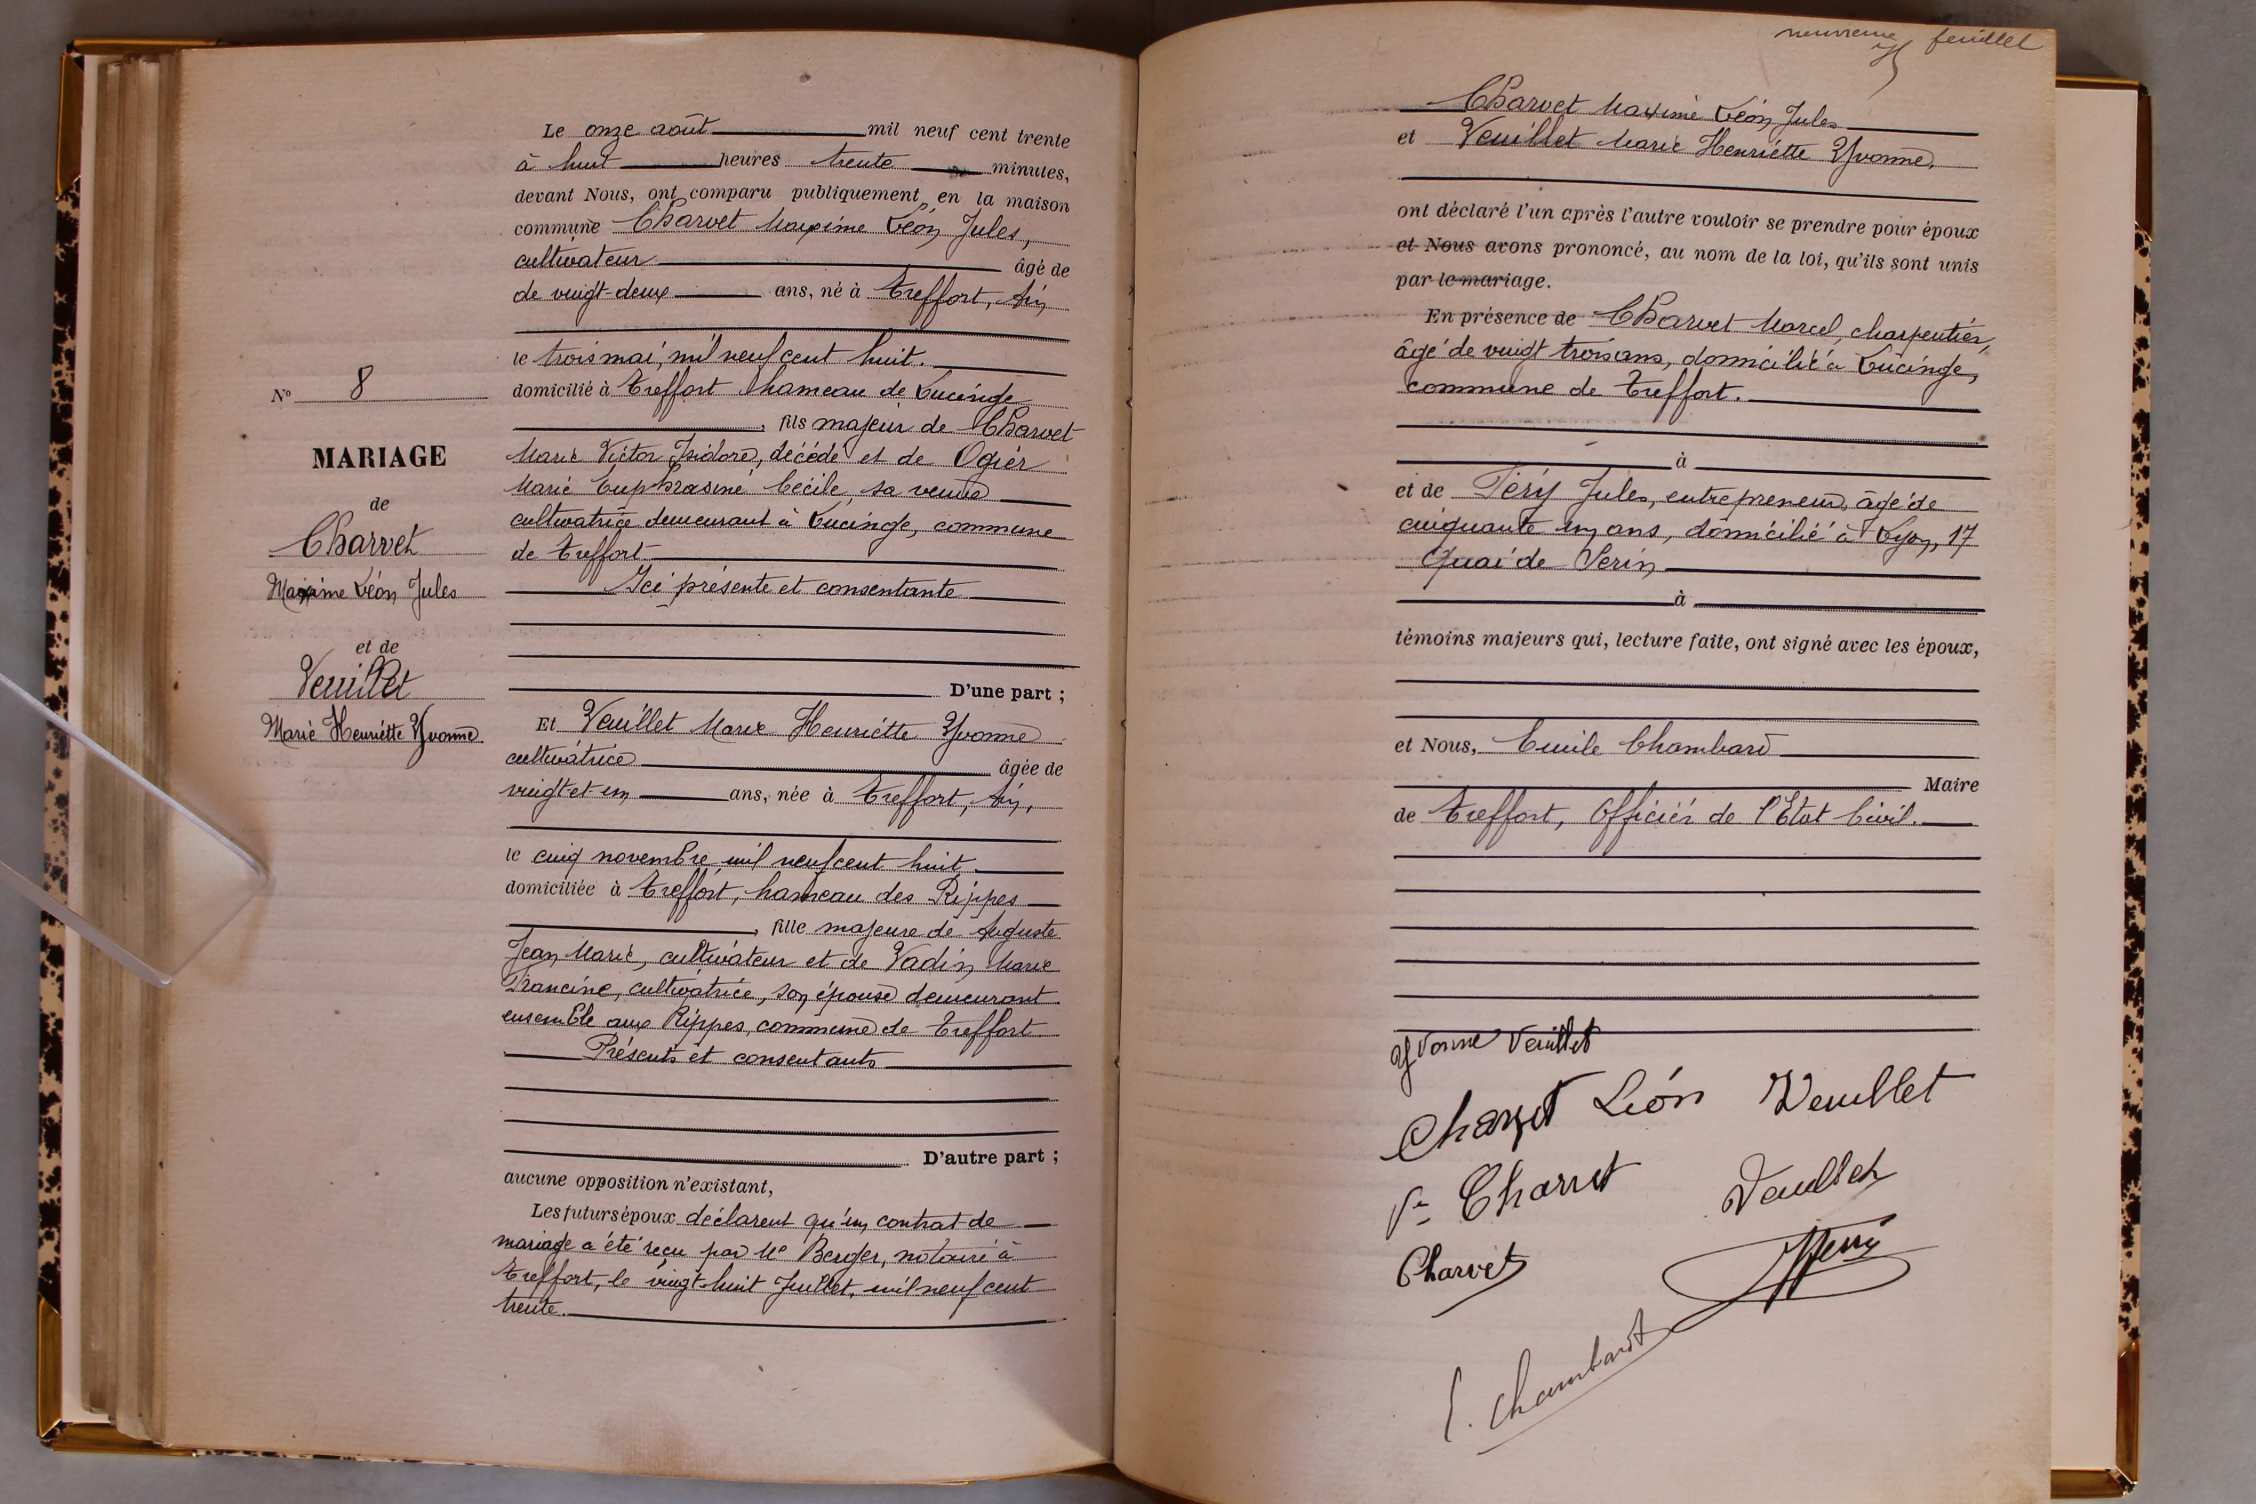 Le onze août mil neuf cent trente
à huit heures trente minutes,
devant Nous, ont comparu publiquement en la maison
commune Charvet Maxime Léon Jules,
cultivateur âgé de
de vingt-deux ans, né à Treffort, Ain
le trois mai, mil neuf cent huit.
domicilié à Treffort hameau de Lucinge
, fils majeur de Charvet
Marie Victor Isidore, décédé et de Ogier
Marie Euphrasine Cécile, sa veuve
cultivatrice demeurant à Lucinge, commune
de Treffort
Ici présente et consentante
D'une part ;
Et Veuillet Marie Henriette Yvonne
cultivatrice âgée de
vingt-et-un ans, née à Treffort, Ain,
le cinq novembre mil neuf cent huit.
domiciliée à Treffort, hameau des Rippes
, fille majeure de Auguste
Jean Marie, cultivateur et de Vadin Marie
Francine, cultivatrice, son épouse demeurant
ensemble aux Rippes, commune de Treffort
Présents et consentants
D'autre part ;
aucune opposition n'existant,
Les futurs époux déclarent qu'un contrat de
mariage a été reçu par Me Berger, notaire à
Treffort, le vingt-huit Juillet, mil neuf cent
trente.
No 8
MARIAGE
de
Charvet
Maxime Léon Jules
et de
Veuillet
Marie Henriette Yvonne
neuvième feuillet
Charvet Maxime Léon Jules
et Veuillet Marie Henriette Yvonne,
ont déclaré l'un après l'autre vouloir se prendre pour époux
et Nous avons prononcé, au nom de la loi, qu'ils sont unis
par le mariage.
En présence de Charvet Marcel, charpentier,
âgé de vingt trois ans, domicilié à Lucinge,
commune de Treffort.
à
et de Féry Jules, entrepreneur, âgé de
cinquante un ans, domicilié à Lyon, 17
Quai de Serin
à
témoins majeurs qui, lecture faite, ont signé avec les époux,
et Nous, Emile Chambard
Maire
de Treffort, Officier de l'Etat Civil.
Yvonne Veuillet
Charvet Léon Veuillet
Ve Charvet Veuillet
Charvet
E. Chambard